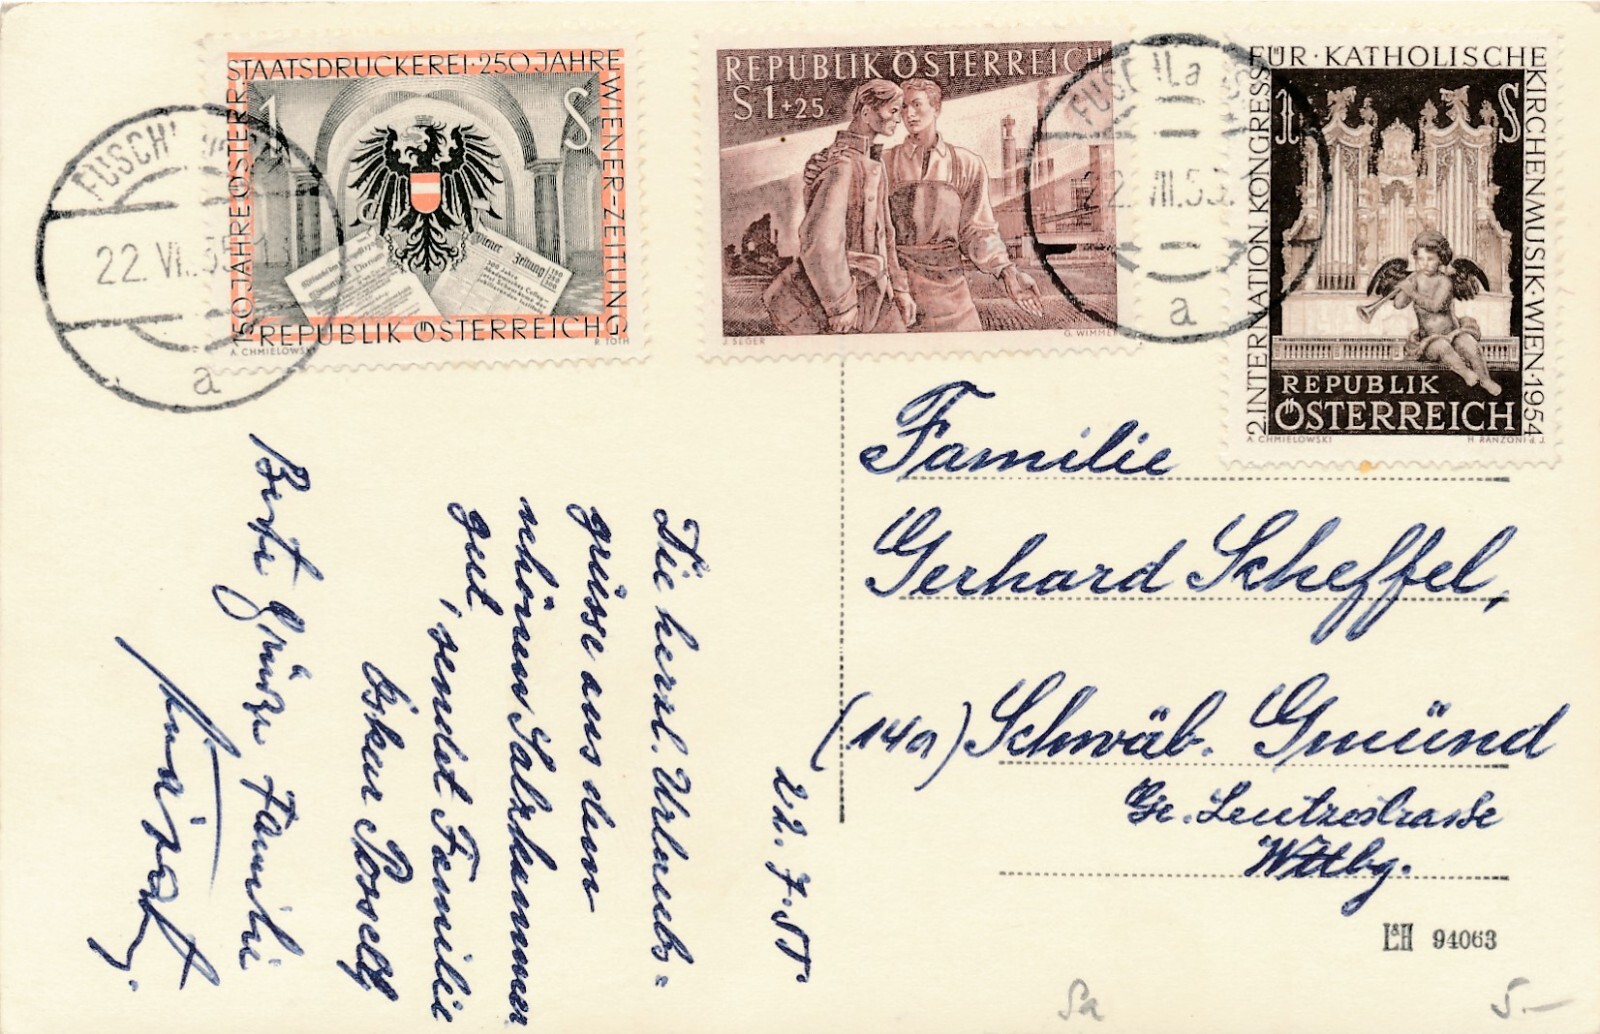 STAATSDRUCKEREI·250 JAHRE
WIENER-ZEITUNG
150 JAHRE ÖSTERR.
1 S
Wiener
Zeitung
REPUBLIK ÖSTERREICH
A. CHMIELOWSKI
R. TOTH
22. VII. 55
a
REPUBLIK ÖSTERREICH
S 1 + 25
J. SEGER
G. WIMMER
22. VII. 55.
a
2. INTERNATION. KONGRESS
FÜR · KATHOLISCHE
KIRCHENMUSIK·WIEN·1954
1 S
REPUBLIK
ÖSTERREICH
A CHMIELOWSKI
H RANZONI d. J.
22.7.55
Die herzl. Urlaubs-
grüsse aus dem
schönen Salzkammer
gut, sendet Familie
Oskar Posselt
Beste Grüße Familie
Familie
Gerhard Scheffel,
(14a) Schwäb. Gmünd
Gr. Leutzestrasse
Wttbg.
L&H 94063
5.–